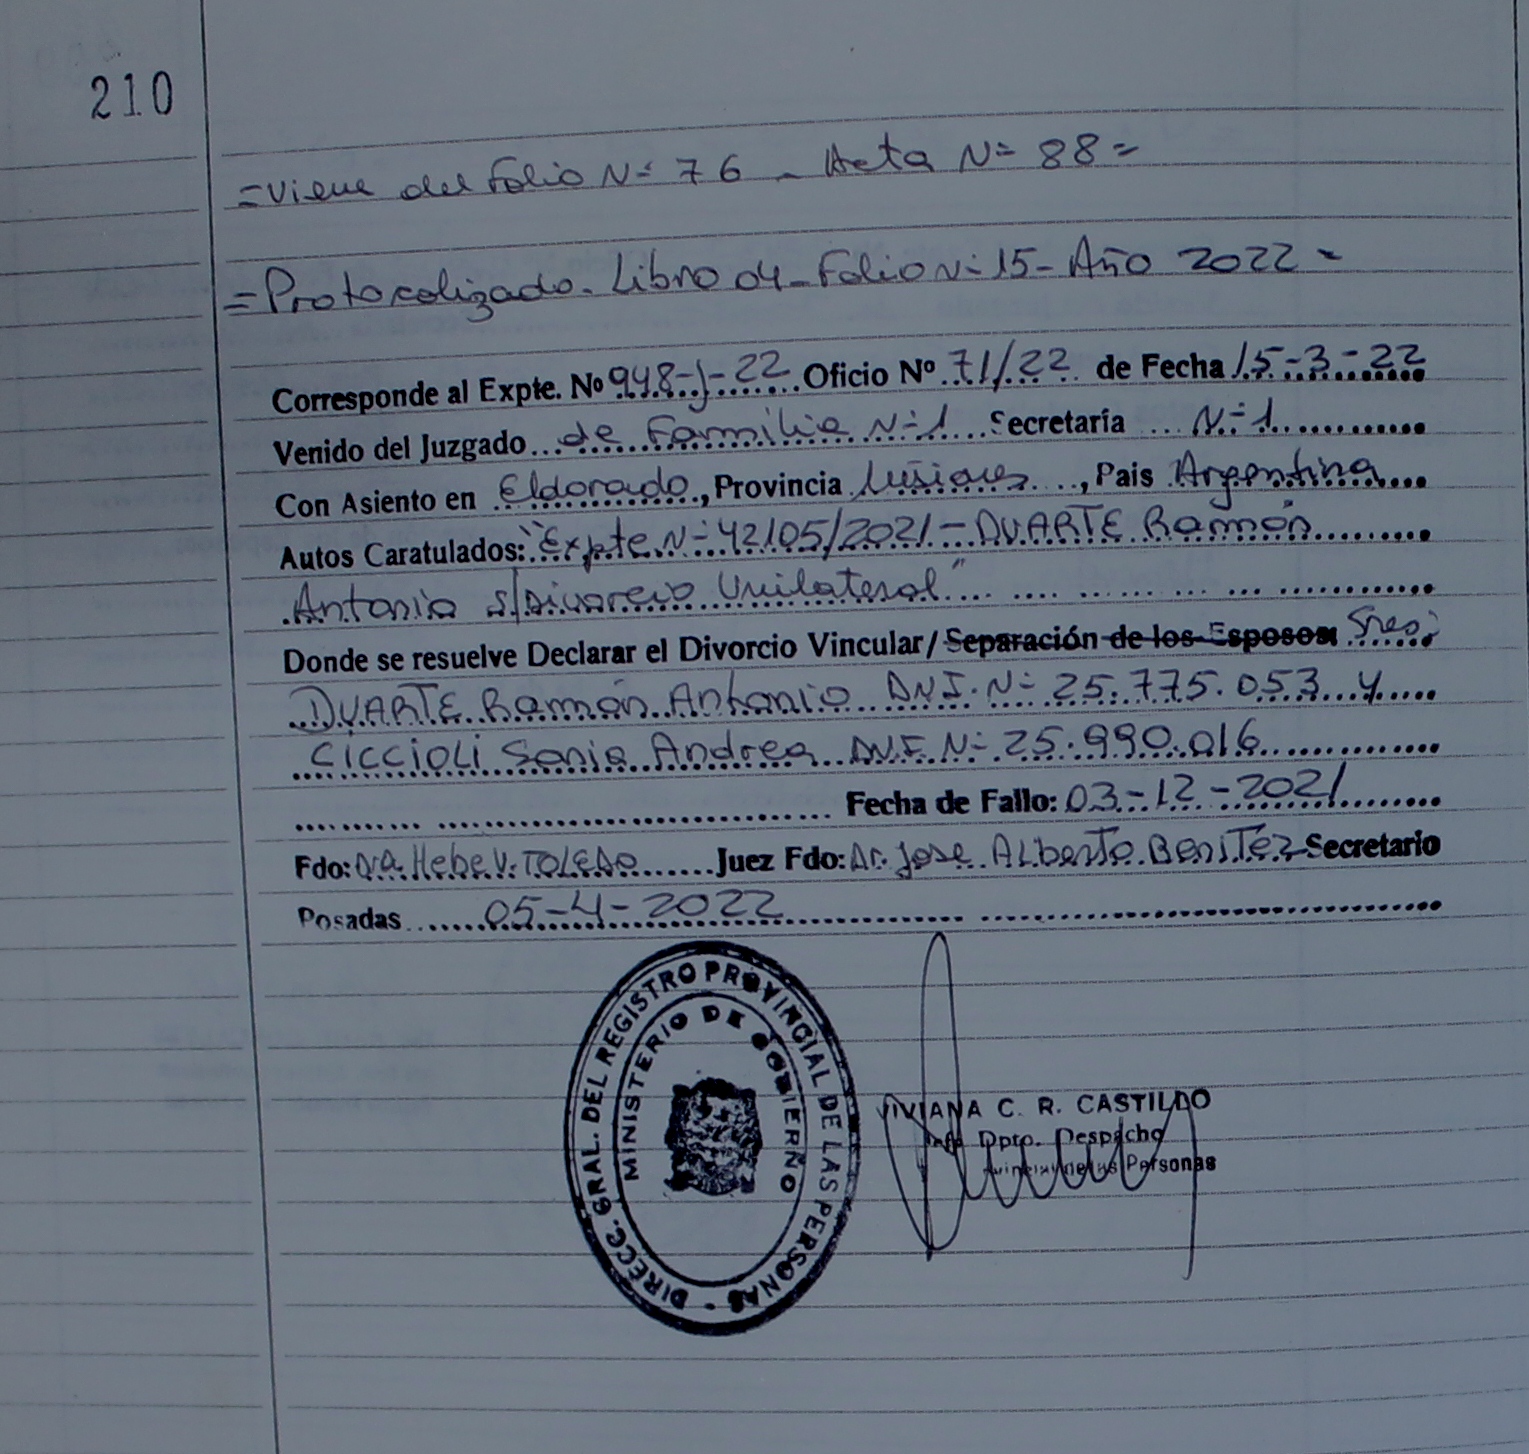 210
=Viene del Folio Nº 76 - Acta Nº 88=
=Protocolizado. Libro 04-Folio Nº 15-Año 2022=
Corresponde al Expte. Nº 948-J-22 Oficio Nº 71/22 de Fecha 15-3-22
Venido del Juzgado de Familia Nº 1 Secretaría Nº 1
Con Asiento en Eldorado, Provincia Misiones, Pais Argentina
Autos Caratulados: "Expte Nº 42105/2021-DUARTE Ramón
Antonio s/Divorcio Unilateral"
Donde se resuelve Declarar el Divorcio Vincular/Separación de los Esposos Sres:
DUARTE Ramón Antonio DNI. Nº 25.775.053 y
CICCIOLI Sonia Andrea DNI. Nº 25.990.016
Fecha de Fallo: 03-12-2021
Fdo: Dra. Hebe V. TOLEDO Juez Fdo: Dr. Jose Alberto BENITEZ Secretario
Posadas 05-4-2022
DIRECC. GRAL. DEL REGISTRO PROVINCIAL DE LAS PERSONAS -
MINISTERIO DE GOBIERNO
VIVIANA C. R. CASTILLO
Dpto. Despacho
de las Personas